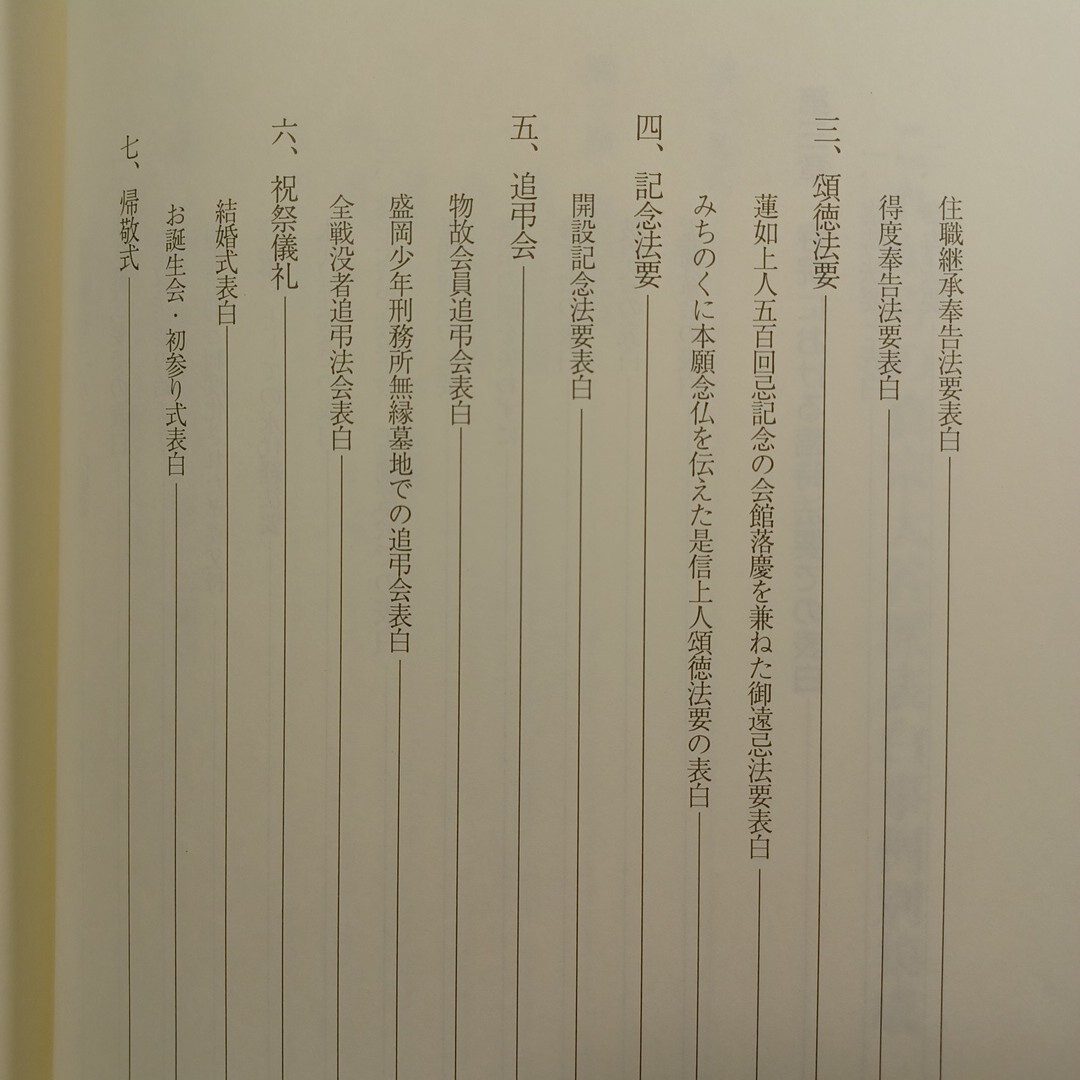 住職継承奉告法要表白
得度奉告法要表白
三、頌徳法要
蓮如上人五百回忌記念の会館落慶を兼ねた御遠忌法要表白
みちのくに本願念仏を伝えた是信上人頌徳法要の表白
四、記念法要
開設記念法要表白
五、追弔会
物故会員追弔会表白
盛岡少年刑務所無縁墓地での追弔会表白
全戦没者追弔法会表白
六、祝祭儀礼
結婚式表白
お誕生会・初参り式表白
七、帰敬式